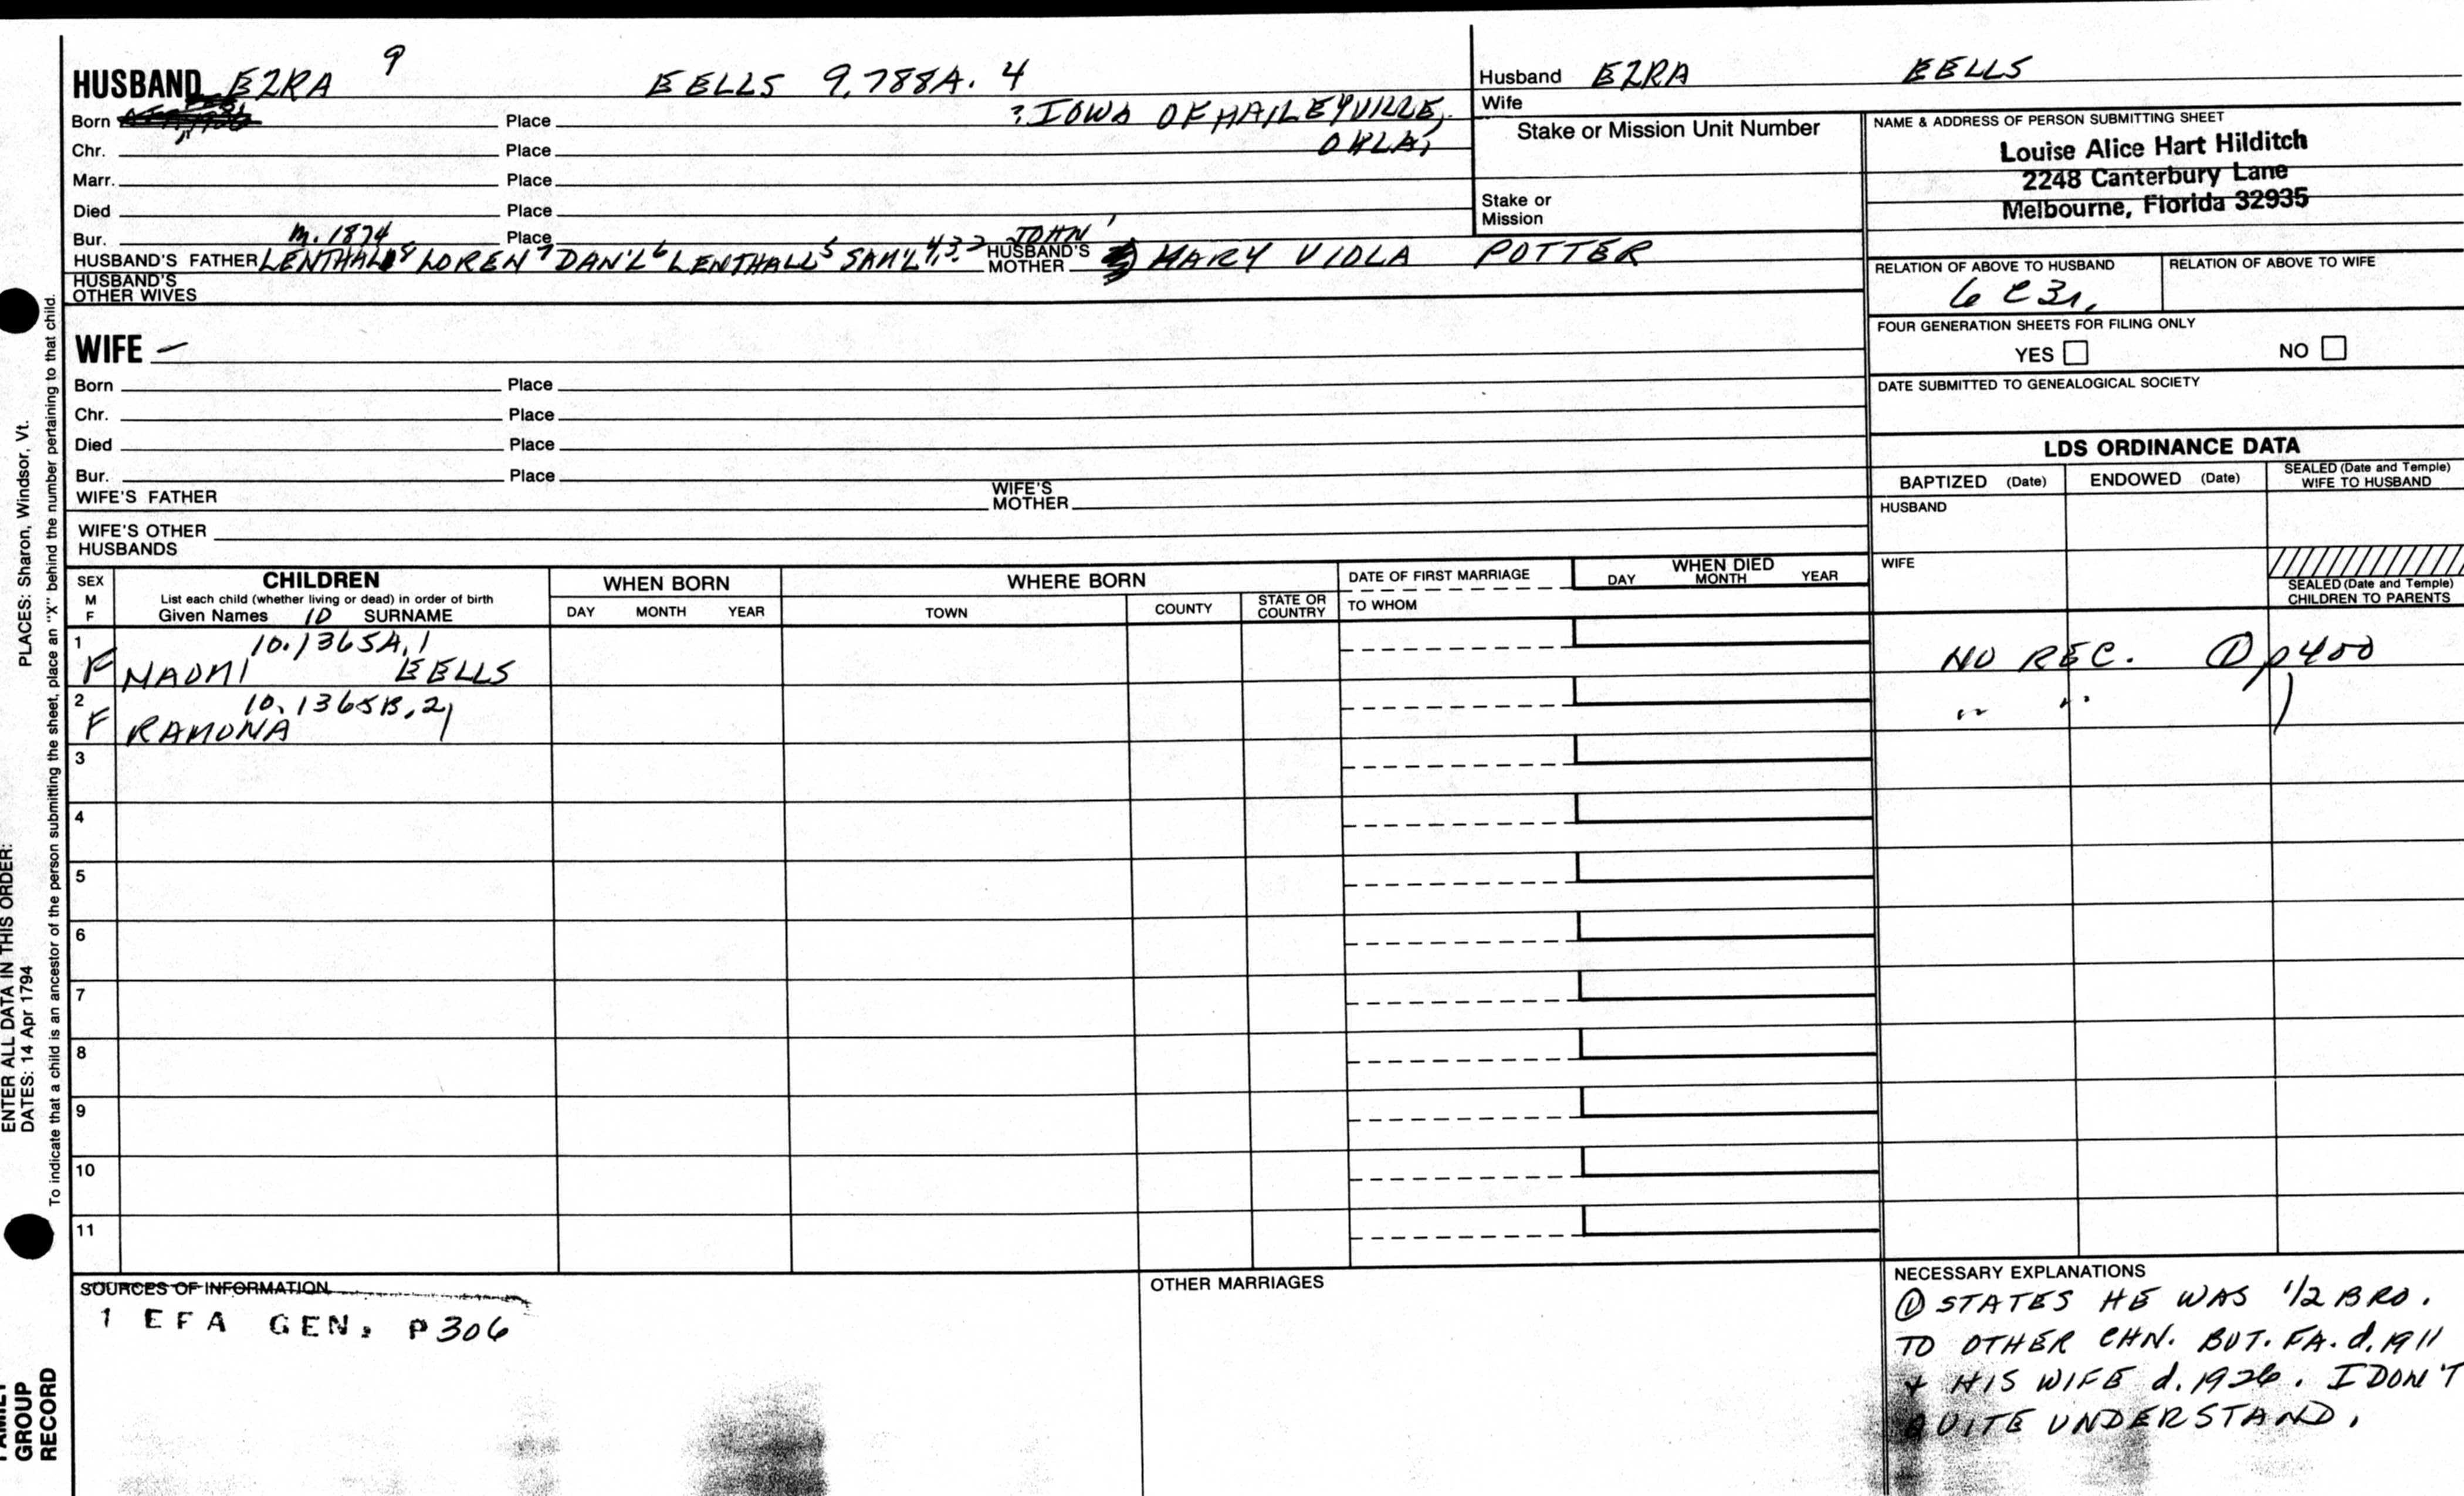 HUSBAND EZRA 9 EELLS 9.788A.4
Born Place ? IOWA OF HAILEYVILLE,
OKLA,
Chr. Place
Marr. Place
Died Place
Bur. m. 1874 Place JOHN 1
HUSBAND'S FATHER LENTHALL 8 LOREN 7 DAN'L 6 LENTHALL 5 SAM'L 4,3,2 HUSBAND'S MOTHER MARY VIOLA POTTER
HUSBAND'S OTHER WIVES
WIFE –
Born Place
Chr. Place
Died Place
Bur. Place
WIFE'S FATHER WIFE'S MOTHER
WIFE'S OTHER HUSBANDS
Husband EZRA EELLS
Wife
Stake or Mission Unit Number
Stake or Mission
NAME & ADDRESS OF PERSON SUBMITTING SHEET
Louise Alice Hart Hilditch
2248 Canterbury Lane
Melbourne, Florida 32935
RELATION OF ABOVE TO HUSBAND RELATION OF ABOVE TO WIFE
6 C 3r.
FOUR GENERATION SHEETS FOR FILING ONLY
YES NO
DATE SUBMITTED TO GENEALOGICAL SOCIETY
LDS ORDINANCE DATA
BAPTIZED (Date) ENDOWED (Date) SEALED (Date and Temple) WIFE TO HUSBAND
HUSBAND
WIFE
SEALED (Date and Temple) CHILDREN TO PARENTS
SEX M F
CHILDREN
List each child (whether living or dead) in order of birth
Given Names ID SURNAME
WHEN BORN
DAY MONTH YEAR
WHERE BORN
TOWN COUNTY STATE OR COUNTRY
DATE OF FIRST MARRIAGE
TO WHOM
WHEN DIED
DAY MONTH YEAR
1 10.1365A.1
F NAOMI EELLS NO REC. ① p400
2 10.1365B.2
F RAMONA " " )
3
4
5
6
7
8
9
10
11
SOURCES OF INFORMATION
1 EFA GEN. P306
OTHER MARRIAGES
NECESSARY EXPLANATIONS
① STATES HE WAS 1/2 BRO.
TO OTHER CHN. BUT. FA. d. 1911
+ HIS WIFE d. 1926. I DON'T
QUITE UNDERSTAND.
ENTER ALL DATA IN THIS ORDER:
DATES: 14 Apr 1794
PLACES: Sharon, Windsor, Vt.
To indicate that a child is an ancestor of the person submitting the sheet, place an "X" behind the number pertaining to that child.
FAMILY
GROUP
RECORD